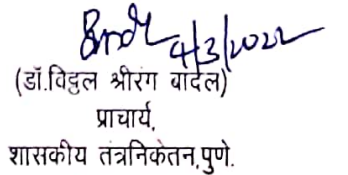 4/3/2022
(डॉ.विठ्ठल श्रीरंग बांदल)
प्राचार्य,
शासकीय तंत्रनिकेतन,पुणे.